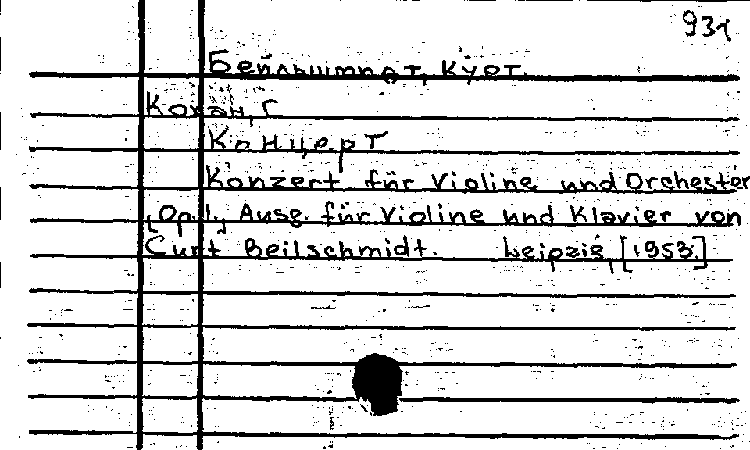 931
Бейльшмидт, Курт.
Кохан, Г
Концерт
Konzert für Violine und Orchester
[Op. 1.] Ausg. für Violine und Klavier von
Curt Beilschmidt. Leipzig, [1953.]